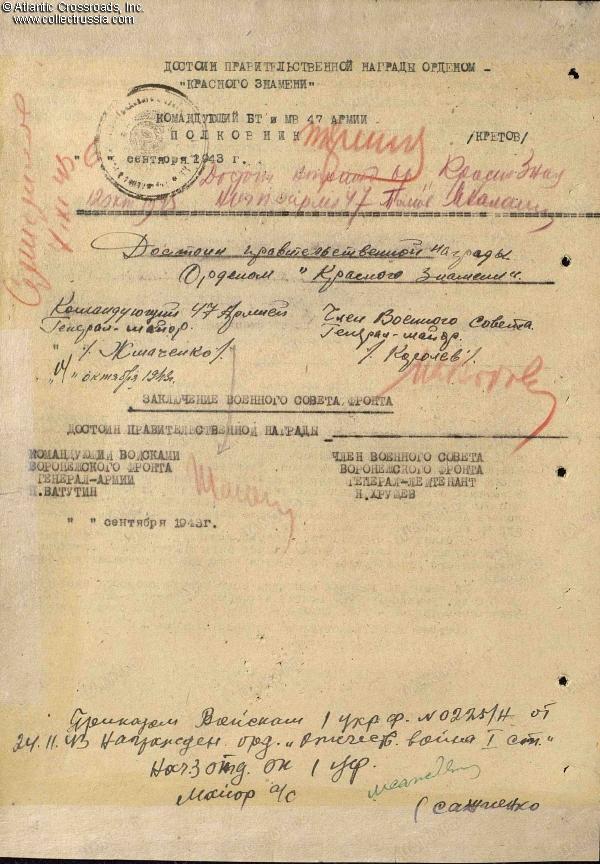 © Atlantic Crossroads, Inc.
www.collectrussia.com
ДОСТОИН ПРАВИТЕЛЬСТВЕННОЙ НАГРАДЫ ОРДЕНОМ –
"КРАСНОГО ЗНАМЕНИ"
КОМАНДУЮЩИЙ БТ и МВ 47 АРМИИ
ПОЛКОВНИК /КРЕТОВ/
" " сентября 1943 г.
Достоин Красн Знам
Достоин правительственной награды
Орденом "Красного Знамени".
Командующий 47 Армией
Генерал-майор
/Жмаченко/.
октября 1943г.
Член Военного Совета
Генерал-майор
/Королев/.
ЗАКЛЮЧЕНИЕ ВОЕННОГО СОВЕТА ФРОНТА
ДОСТОИН ПРАВИТЕЛЬСТВЕННОЙ НАГРАДЫ
КОМАНДУЮЩИЙ ВОЙСКАМИ
ВОРОНЕЖСКОГО ФРОНТА
ГЕНЕРАЛ-АРМИИ
Н.ВАТУТИН
ЧЛЕН ВОЕННОГО СОВЕТА
ВОРОНЕЖСКОГО ФРОНТА
ГЕНЕРАЛ-ЛЕЙТЕНАНТ
Н.ХРУЩЕВ
" " сентября 1943г.
Приказом Войскам 1 укр.ф. № 0225/Н от
24.11.43 Награжден орд. „Отечеств. война I ст."
Нач 3 отд. ок 1 уф.
Майор а/с
(Сажненко